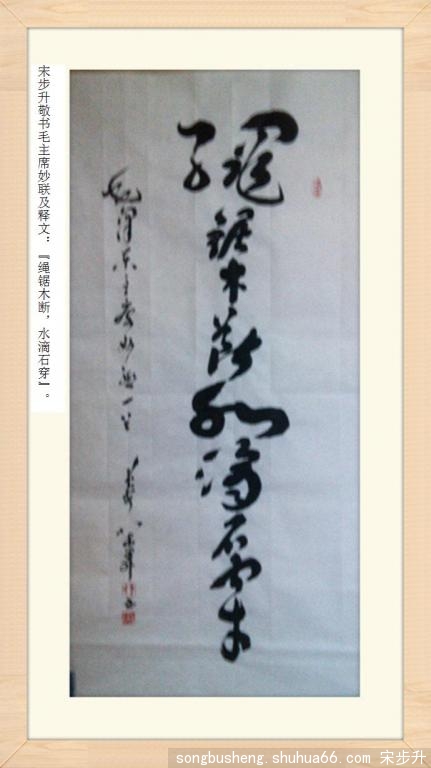 宋步升敬书毛主席妙联及释文：『绳锯木断，水滴石穿』。
繩鋸木斷水滴石穿
毛澤東主席妙聯一
songbusheng.shuhua66.com 宋步升